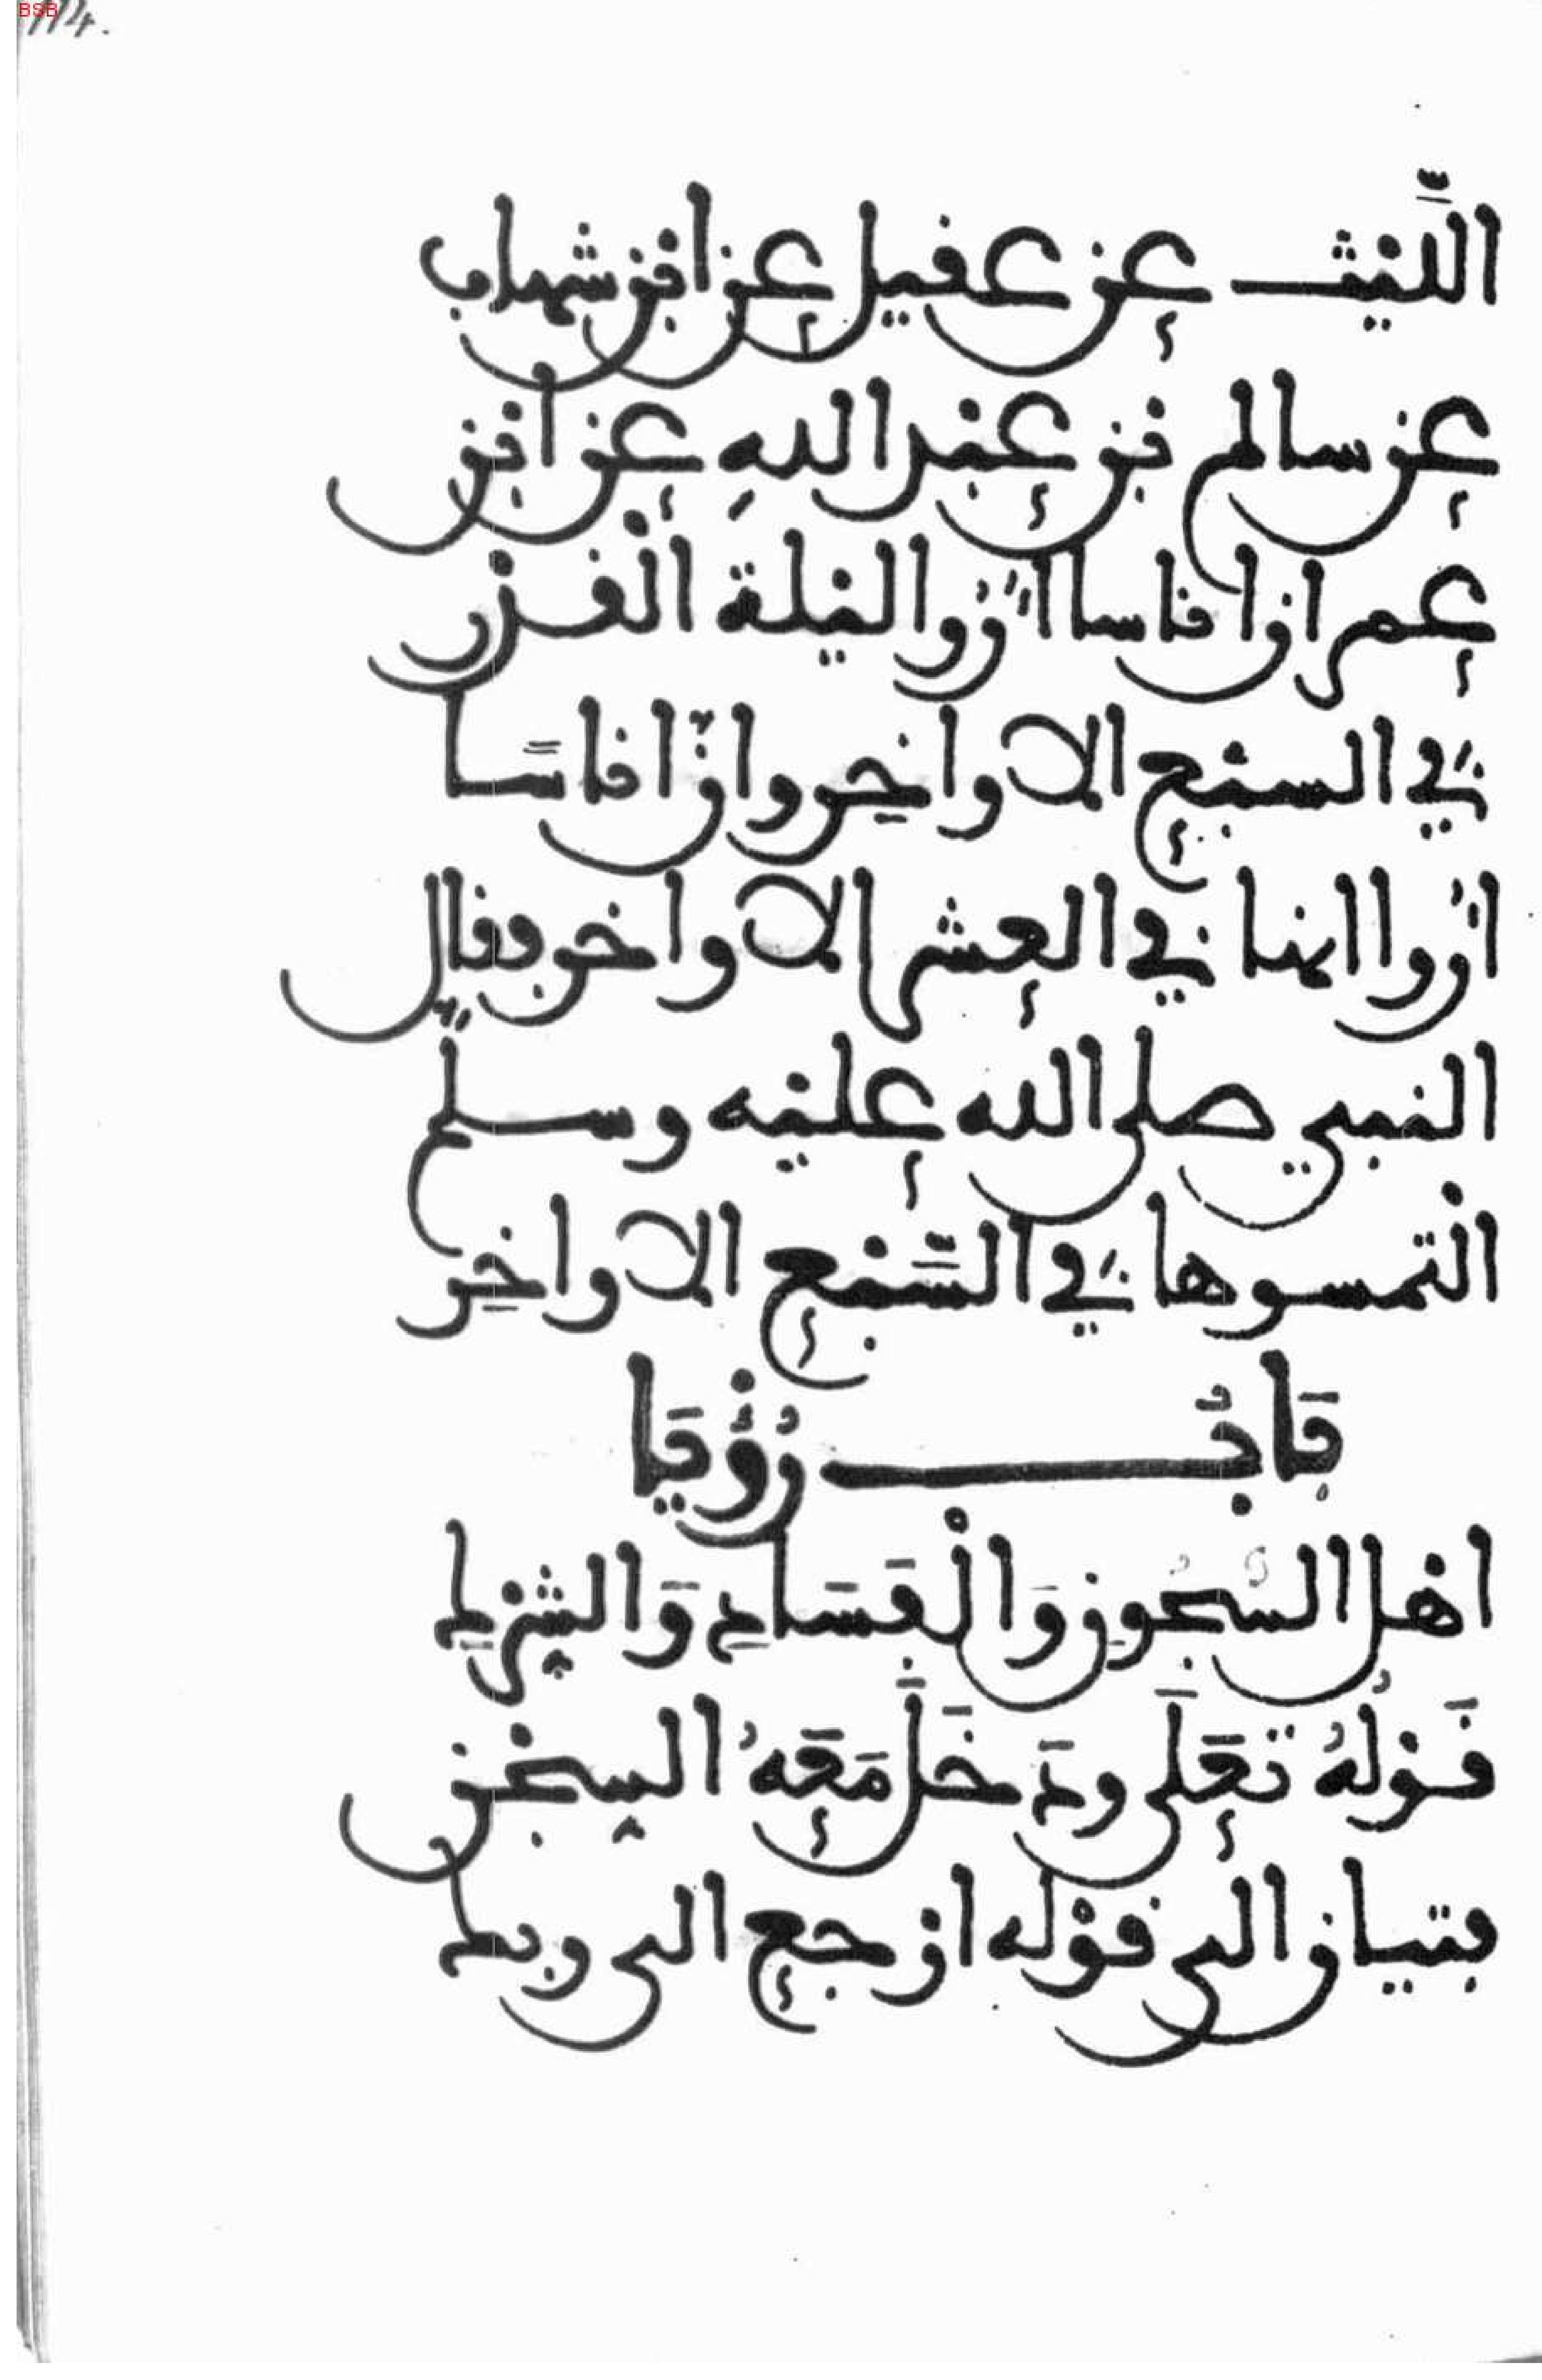 BSB
114.
اللَّيث عن عقيل عن ابن شهاب
عن سالم بن عبد اللهِ عن ابن
عمر ان اناسا اُرُوا ليلة الْقدْر
في السبع الاواخِر وانّ اناسًا
اُروا انها في العشر الاواخر فقال
النبي صلى الله عليه وسلم
الْتمسوها في السَّبْع الاواخِر
بَابُ رُؤْيَا
اهْل السُّجُونِ وَالْفَسَادِ وَالشِّرْكِ
قَوْلُهُ تَعَلَى ودَخَلَ مَعَهُ السِّجْن
فتيان الى قوْله ارجع الى ربك